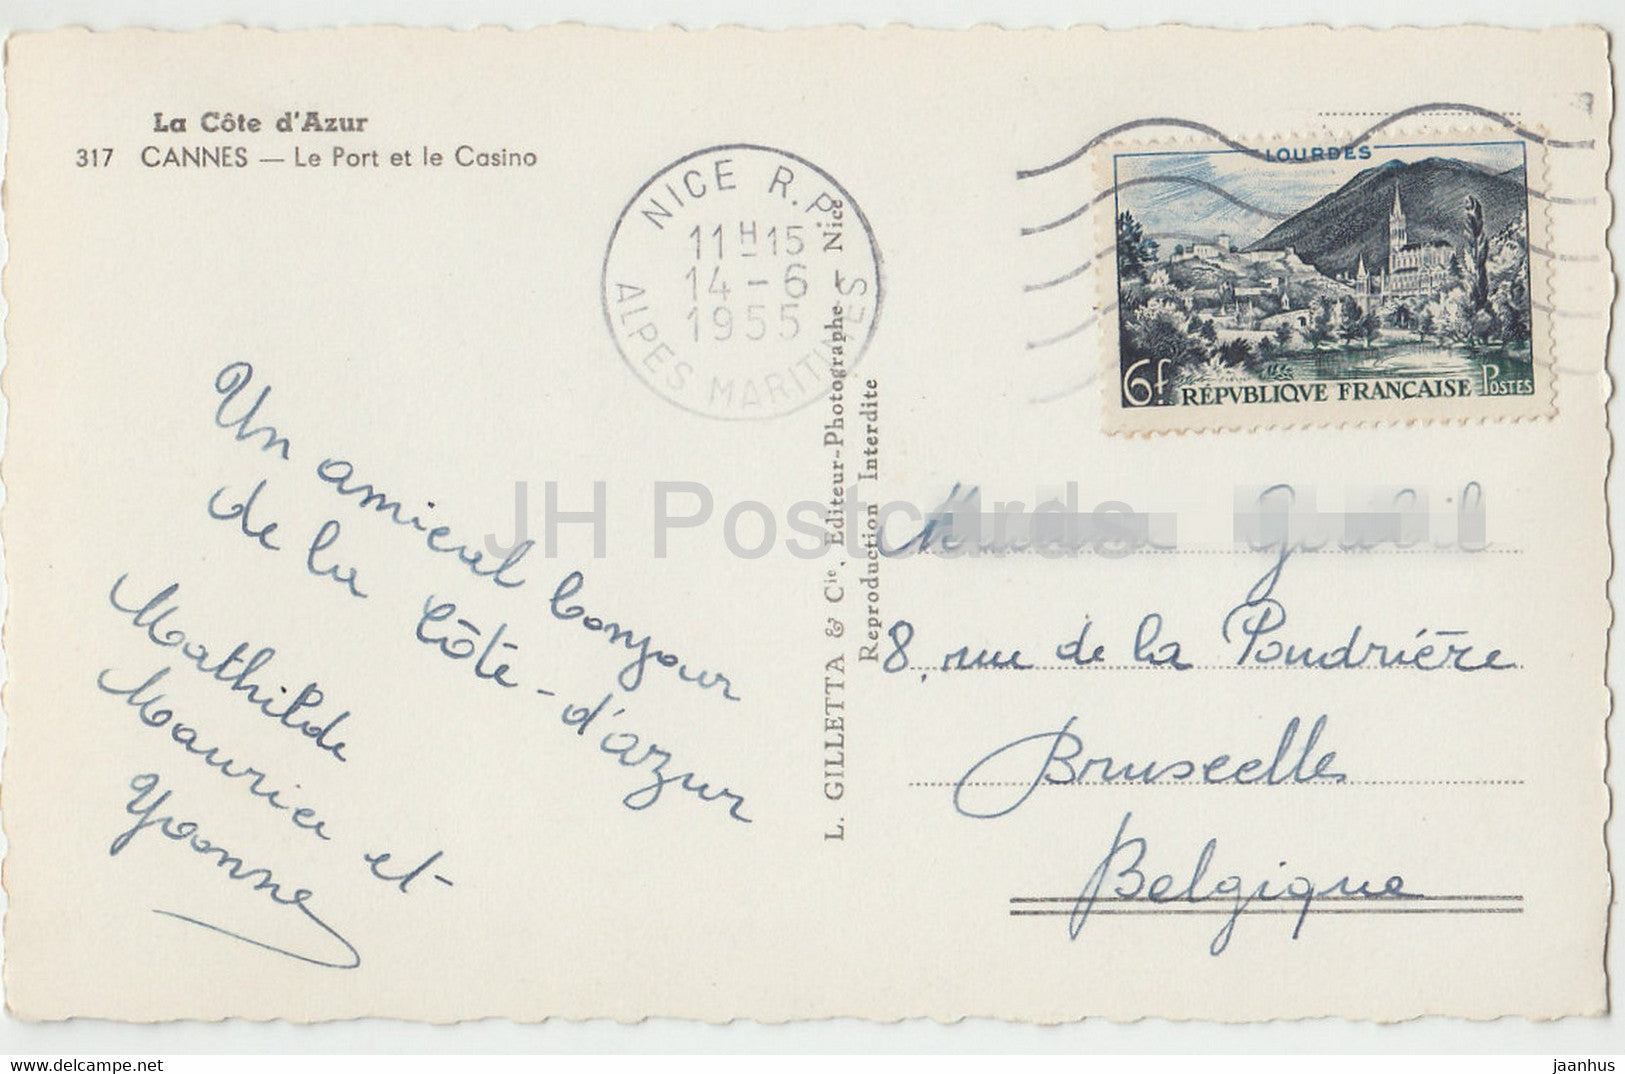 La Côte d'Azur
317 CANNES — Le Port et le Casino
NICE R.P.
11H15
14-6
1955
ALPES MARITIMES
LOURDES
6f RÉPVBLIQVE FRANÇAISE POSTES
Un amical bonjour
de la Côte-d'azur
Mathilde
Maurice et
Yvonne
L. GILLETTA & Cie, Editeur-Photographe - Nice
Reproduction Interdite
8, rue de la Poudrière
Bruxelles
Belgique
JH Postcards
www.delcampe.net
jaanhus